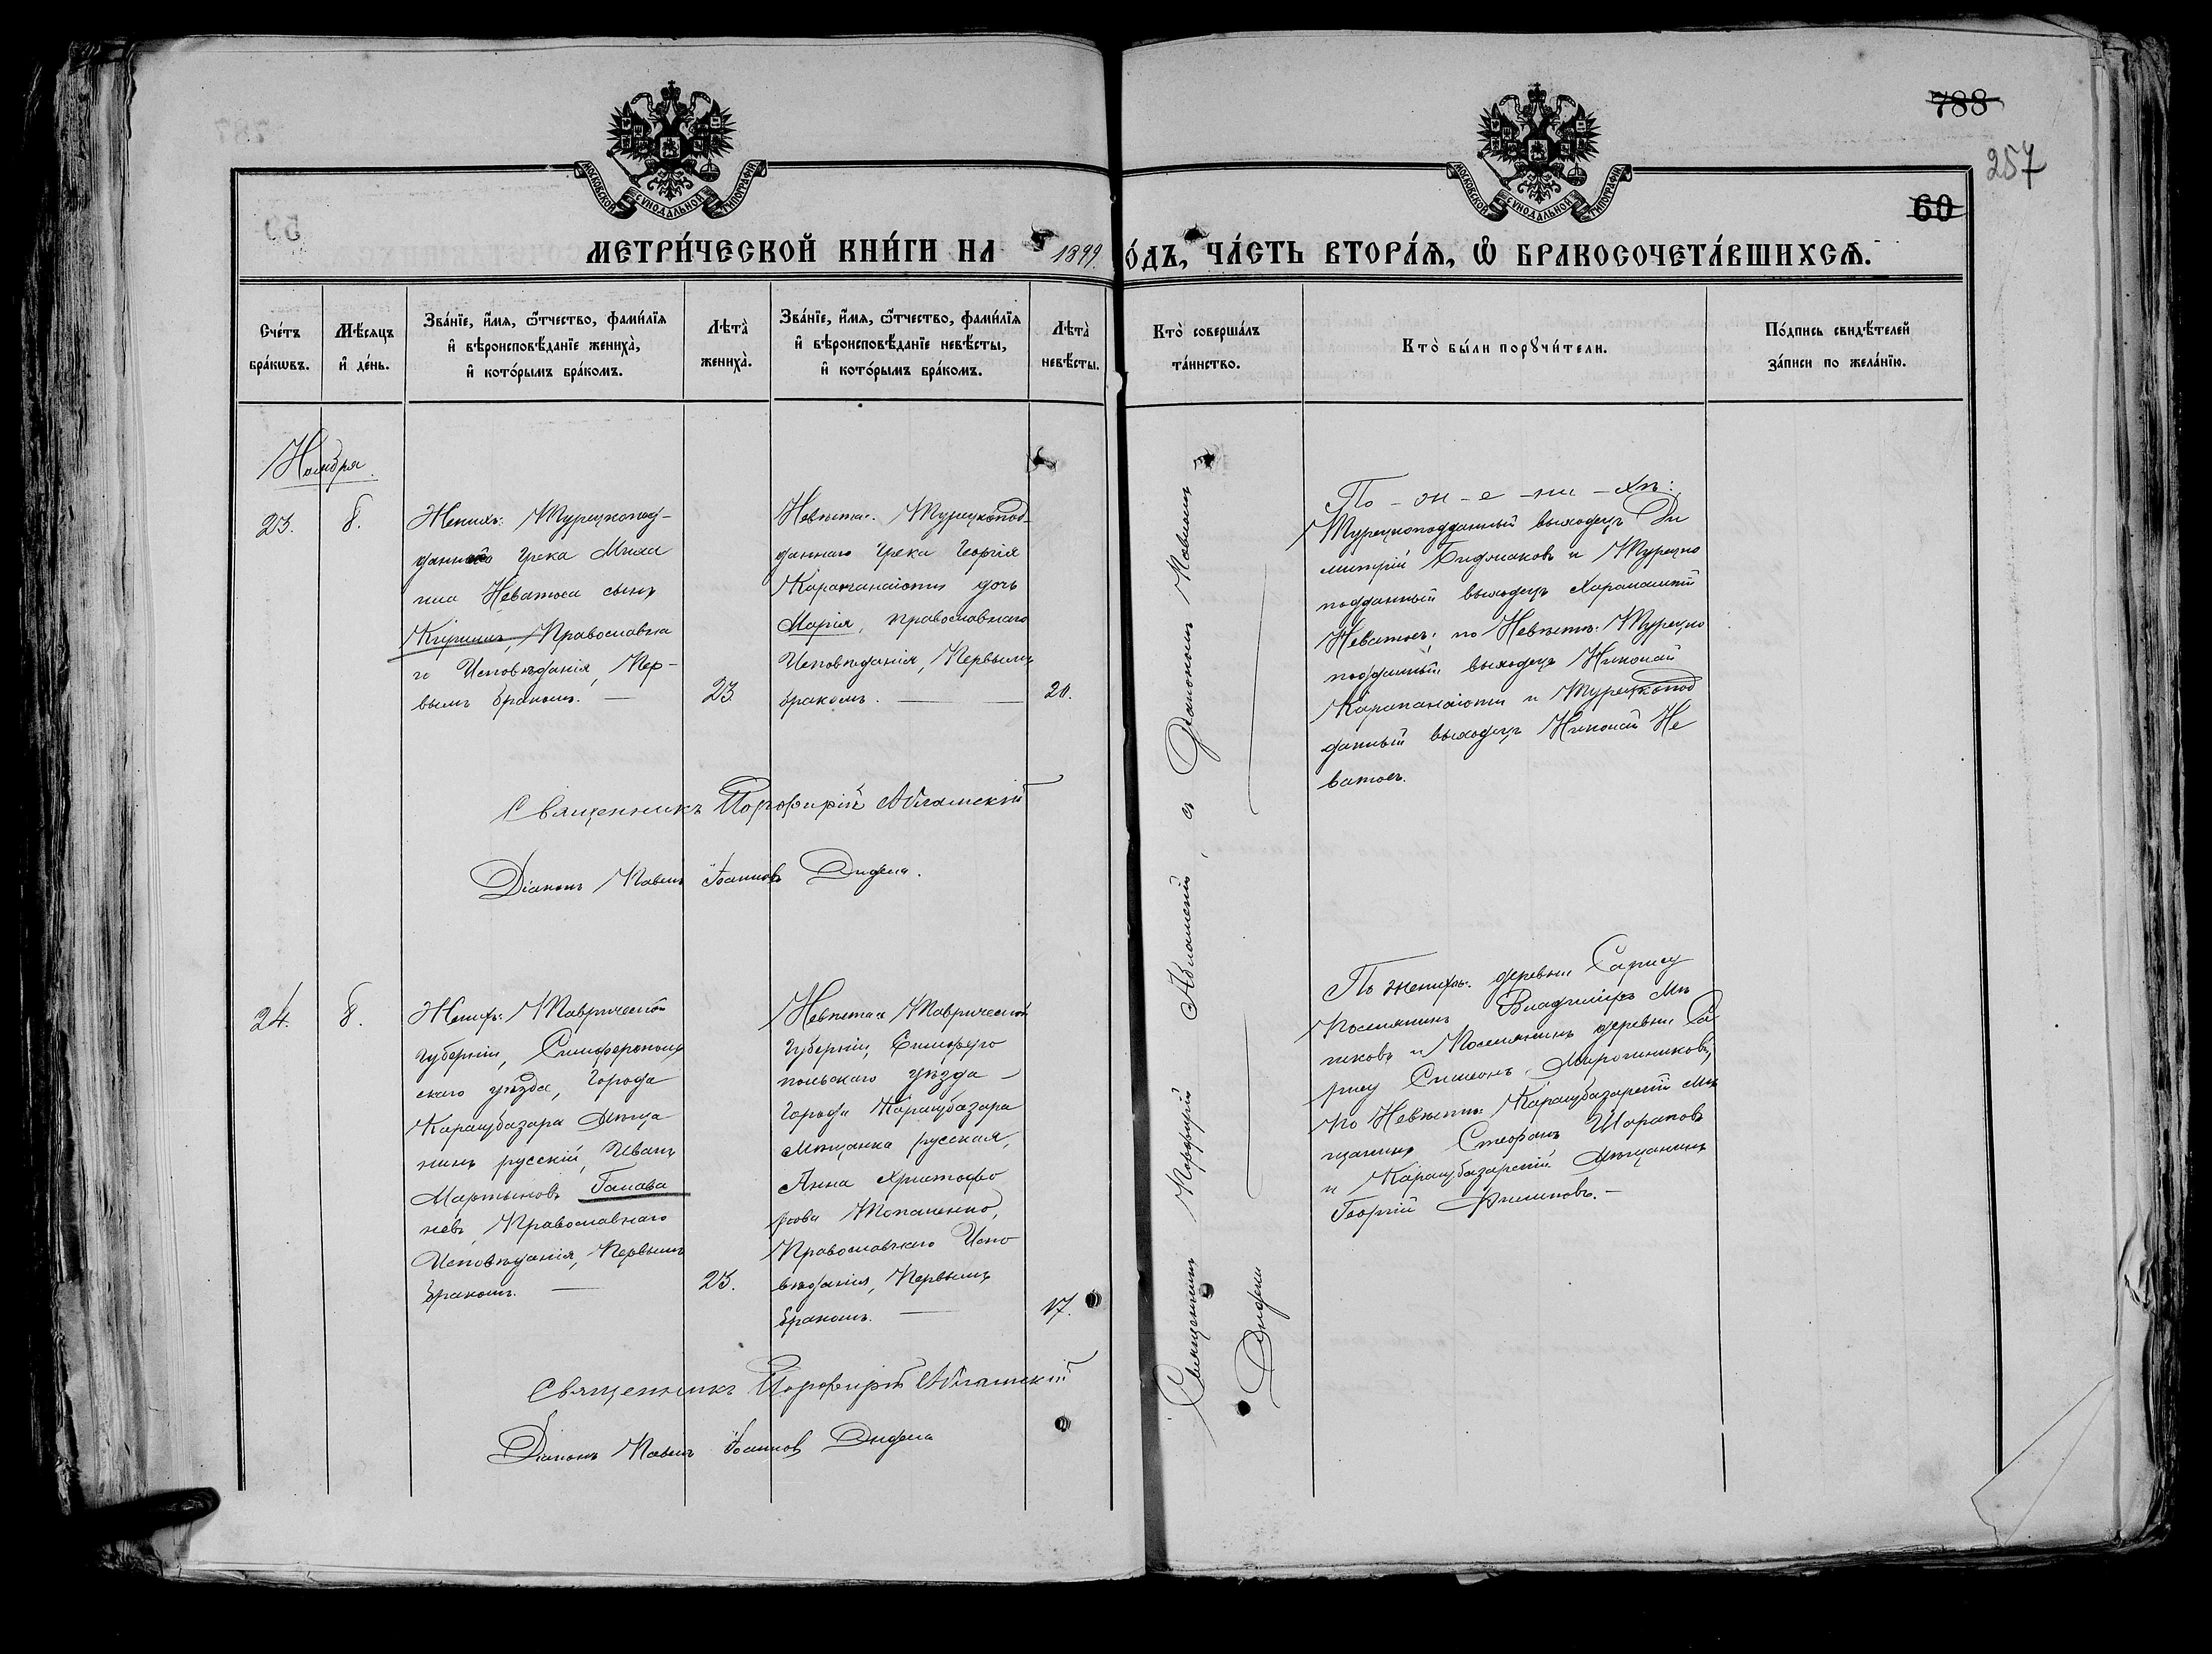 788
257
60
МОСКОВСКОЙ СѴНОДАЛЬНОЙ ТИПОГРАФІИ
МОСКОВСКОЙ СѴНОДАЛЬНОЙ ТИПОГРАФІИ
МЕТРИ́ЧЕСКОЙ КНИ́ГИ НА 1899 ГО́ДЪ, ЧА́СТЬ ВТОРА́Ѧ, Ѽ БРАКОСОЧЕТА́ВШИХСѦ.
Сче́тъ бра́кѡвъ.
Мѣ́сяцъ и҆ де́нь.
Зва́нїе, и҆́мя, ѻ҆́тчество, фами́лїя и҆ вѣроисповѣ́данїе жениха̀, и҆ кото́рымъ бра́комъ.
Лѣта̀ жениха̀.
Зва́нїе, и҆́мя, ѻ҆́тчество, фами́лїя и҆ вѣроисповѣ́данїе невѣ́сты, и҆ кото́рымъ бра́комъ.
Лѣта̀ невѣ́сты.
Кто̀ соверша́лъ та́инство.
Кто̀ бы́ли порꙋчи́тели.
По́дпись свидѣ́телей за́писи по жела́нїю.
Ноября
23.
8.
Женихъ: Турецкопод-
даннаго Грека Миха
ила Неватоса сынъ
Кириллъ, Православна
го Исповѣданія, Пер-
вымъ бракомъ. —
23.
Невѣста: Турецкопод-
даннаго Грека Георгія
Карапанаіоти дочь
Марія, православнаго
Исповѣданія, Первымъ
бракомъ. —
20.
По-же-ни-хѣ:
Турецкоподданный выходецъ Ди
митрій Биджаковъ и Турецко
подданный выходецъ Харлампій
Неватосъ; по Невѣстѣ: Турецко
подданный выходецъ Николай
Карапанаіоти и Турецкопод
данный выходецъ Николай Не
ватосъ.
Священникъ Порфирій Абламскій
Діаконъ Павелъ Іоанновъ Дифеи.
24.
8.
Женихъ: Таврической
Губерніи, Симферополь
скаго уѣзда, Города
Карасубазара Мѣща
нинъ русскій, Иванъ
Мартыновъ Галава
невъ, Православнаго
Исповѣданія, Первымъ
бракомъ. —
23.
Невѣста: Таврической
Губерніи, Симферо
польскаго уѣзда —
Города Карасубазара
Мѣщанка русская,
Анна Христофо
рова Топаленко,
Православнаго Испо
вѣданія, Первымъ
бракомъ. —
17.
По женихѣ: деревни Сарысу
Поселянинъ Владиміръ
и Поселянинъ деревни Са
рысу Симеонъ Мирошниковъ,
По Невѣстѣ: Карасубазарскій Мѣ
щанинъ Стефанъ Шараповъ
и Карасубазарскій Мѣщанинъ
Георгій Филиповъ. —
Священникъ Порфирій Абламскій
Діаконъ Павелъ Іоанновъ Дифеи
Священникъ Порфирій Абламскій, съ Діакономъ Павломъ
Дифеи